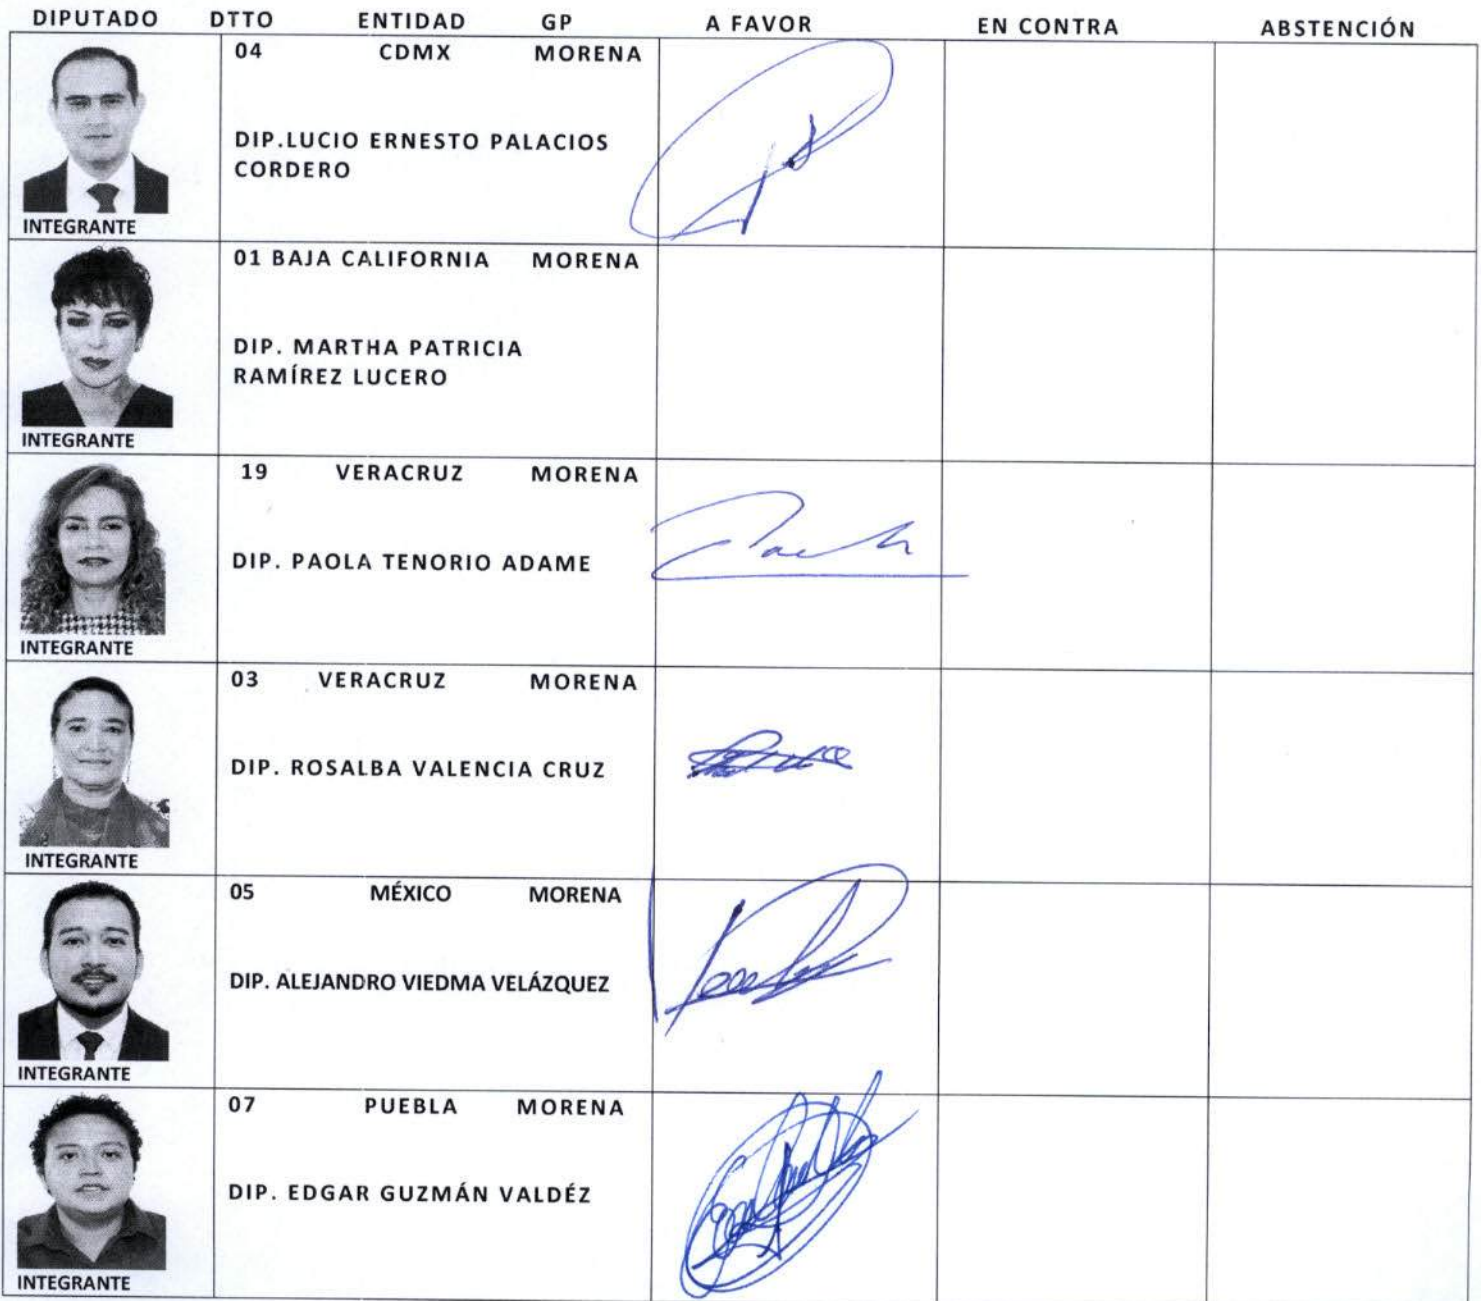 DIPUTADO DTTO ENTIDAD GP A FAVOR EN CONTRA ABSTENCIÓN
04 CDMX MORENA
DIP.LUCIO ERNESTO PALACIOS
CORDERO
INTEGRANTE
01 BAJA CALIFORNIA MORENA
DIP. MARTHA PATRICIA
RAMÍREZ LUCERO
INTEGRANTE
19 VERACRUZ MORENA
DIP. PAOLA TENORIO ADAME
INTEGRANTE
03 VERACRUZ MORENA
DIP. ROSALBA VALENCIA CRUZ
INTEGRANTE
05 MÉXICO MORENA
DIP. ALEJANDRO VIEDMA VELÁZQUEZ
INTEGRANTE
07 PUEBLA MORENA
DIP. EDGAR GUZMÁN VALDÉZ
INTEGRANTE